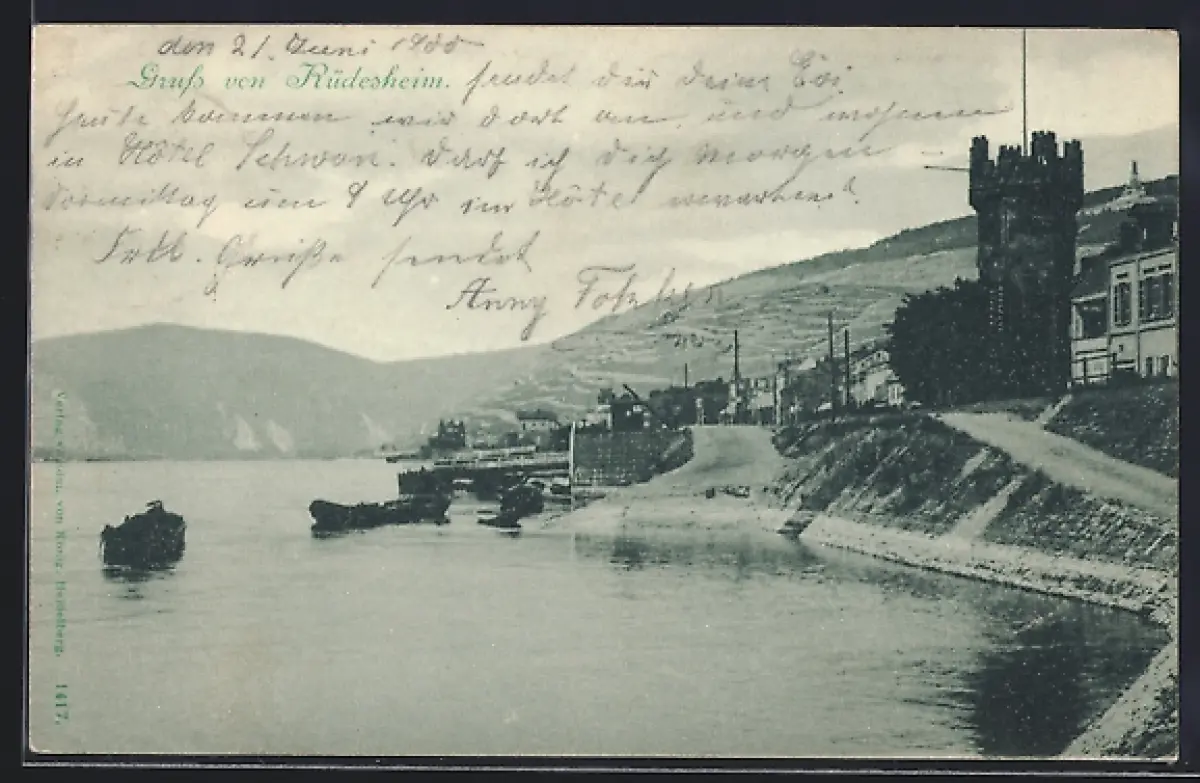 den 21. Juni 1900
Gruß von Rüdesheim. sendet dir deine Evi
Heute kommen wir dort an und wohnen
in Hôtel Schwan. Darf ich dich morgen
Vormittag um 9 Uhr im Hôtel erwarten?
Frdl. Grüße sendet
Anny
Verlag v. Edm. von König, Heidelberg. 1417.